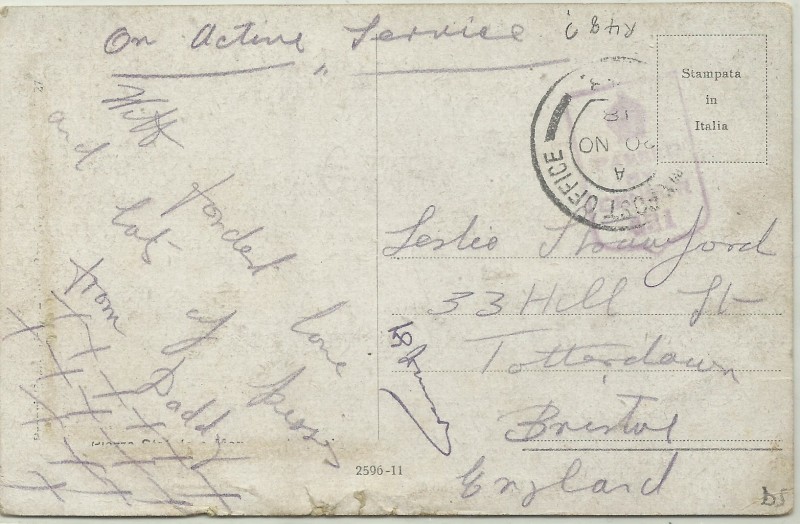 On Active Service
R48
Stampata
in
Italia
POST OFFICE
A
NO
18
With fondest love
and lots of kisses
from Daddy
X X X X X X X X X X X X X X X X X X
Leslie
33 Hill St
Totterdown
Bristol
England
2596-11